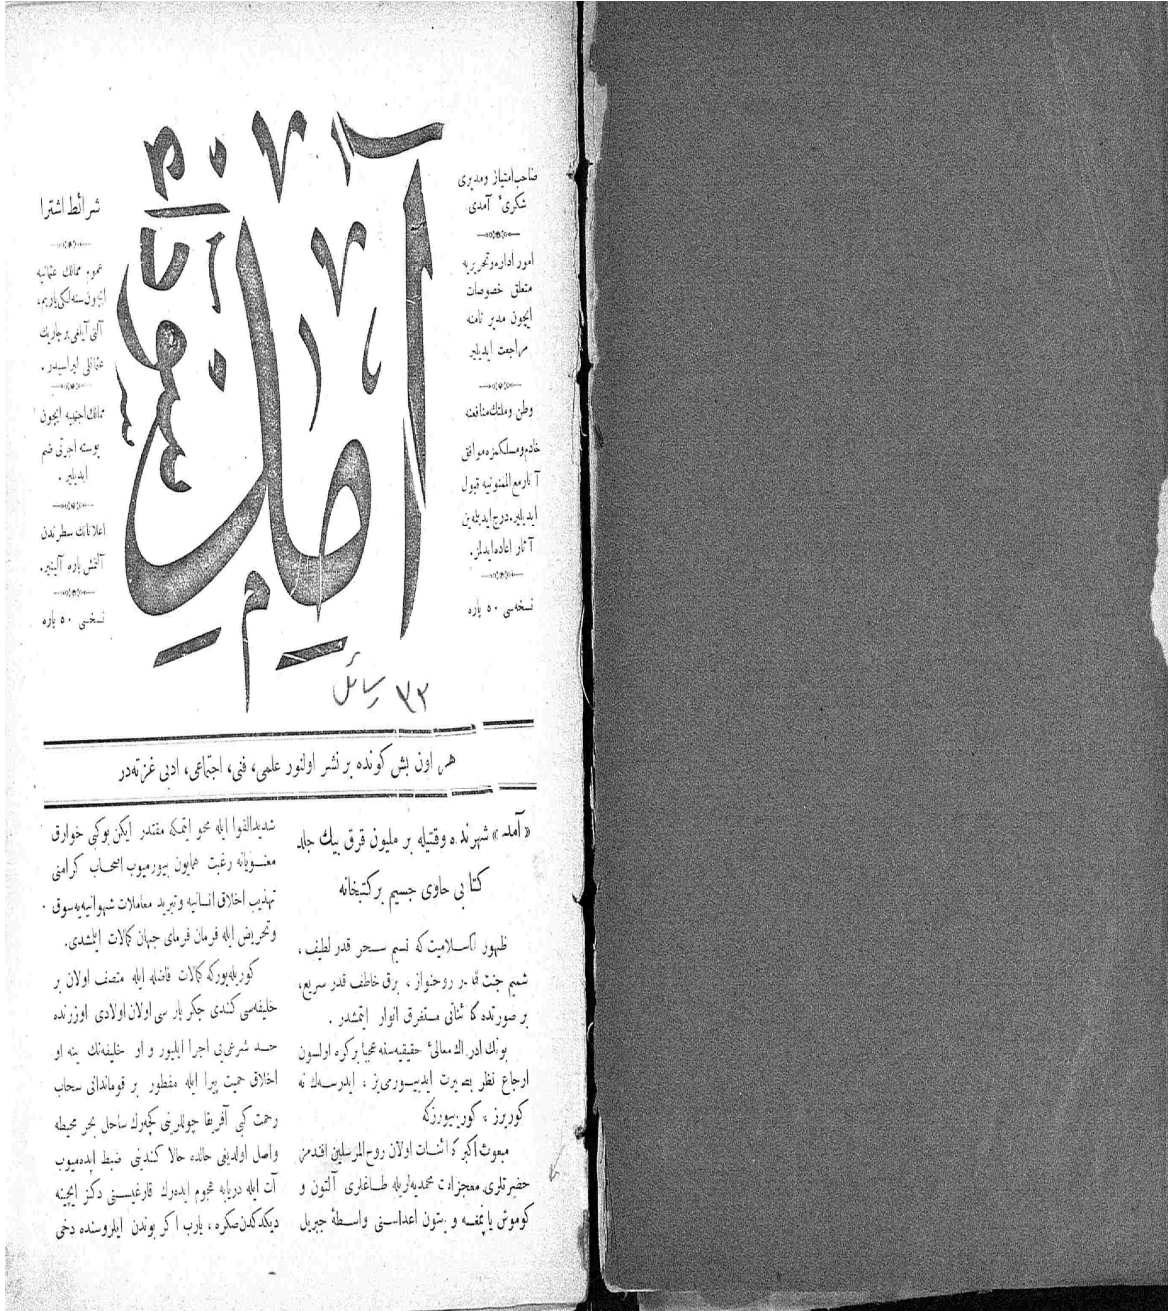 صاحب امتیاز ومدیری
شکری ٔ آمدی
امور اداره وتحریریه
متعلق خصوصات
ایچون مدیر نامنه
مراجعت ایدیلیر
وطن وملتك منافعنه
خادم ومسلكمزه موافق
آثار مع الممنونیه قبول
ایدیلیر، درج ایدیلمه‌ین
آثار اعاده ایدلمز.
نسخه‌سی ۵۰ پاره
شرائط اشترا
عموم ممالك عثمانیه
ایچون سنه‌لكی یاریم،
آلتی آیلغی بر چاریك
عثمانلی لیراسیدر .
ممالك اجنبیه ایچون
پوسته اجرتی ضم
ایدیلیر .
اعلاناتك سطرندن
آلتمش پاره آلینیر.
نسخه‌سی ۵۰ پاره
۳۲ رسائل
هر اون بش كونده بر نشر اولنور علمی، فنی، اجتماعی، ادبی غزته‌در
«آمد» شهرنده وقتیله بر ملیون قرق بیك جلد
كتابی حاوی جسیم بر كتبخانه
ظهور اسلامیت كه نسیم سحر قدر لطیف ،
شمیم جنت قدر روحنواز ، برق خاطف قدر سریع،
بر صورتده كائناتی مستغرق انوار ایتمشدر .
بونك ادراك معالیٔ حقیقیه‌سنه عجبا بر كره اولسون
ارجاع نظر بصیرت ایدییورمی‌یز ، ایدرسه‌ك نه
كوریرز ، كورییورزكه
مبعوث اكبر كائنات اولان روح المرسلین افندمز
حضرتلری معجزات محمدیه‌لریله طاغلری آلتون و
كوموش یاپمغه و بتون اعداسنی واسطهٔ جبریل
شدید القوا ایله محو ایتمكه مقتدر ایكن بوكبی خوارق
معنویاته رغبت همایون بیورمیوب اصحاب كرامنی
تهذیب اخلاق انسانیه وتبرید معاملات شهوانیه‌یه سوق
وتحریض ایله فرمان فرمای جهان كمالات ایلمشدی.
كوریلیوركه كمالات فاضله ایله متصف اولان بر
خلیفه‌سی كندی جكرپاره‌سی اولان اولادی اوزرنده
حد شرعی‌یی اجرا ایلیور و او خلیفه‌نك ینه او
اخلاق حمیت پیرا ایله مفطور بر قوماندانی سحاب
رحمت كبی آفریقا چوللرینی كچه‌رك ساحل بحر محیطه
واصل اولدیغی حالده حالا كندینی ضبط ایده‌میوب
آت ایله دریایه هجوم ایده‌رك قارغیسنی دكز ایچینه
دیكدكدن صكره ، یارب اكر بوندن ایلروسنده دخی